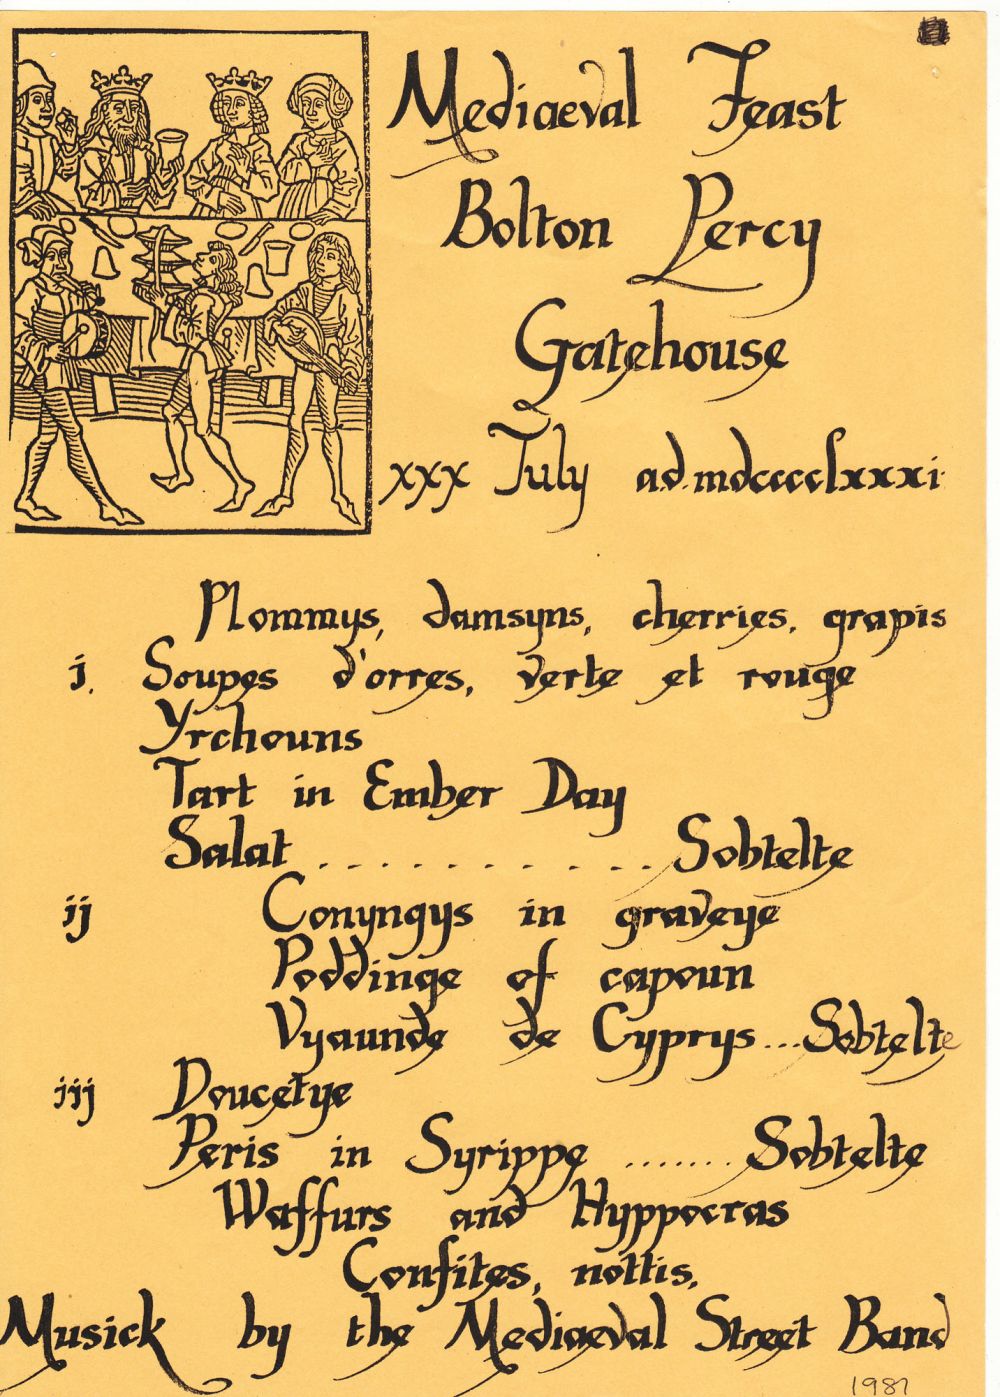 Mediaeval Feast
Bolton Percy
Gatehouse
xxx July a.d. mdcccclxxxi
Plommys, damsyns, cherries, grapis
j. Soupes d'orres, verte et rouge
Yrchouns
Tart in Ember Day
Salat ............ Sobtelte
ij Conyngys in graveye
Poddinge of capoun
Vyaunde de Cyprys ... Sobtelte
iij Doucetye
Peris in Syrippe ....... Sobtelte
Waffurs and Hyppocras
Confites, nottis.
Musick by the Mediaeval Street Band
1981